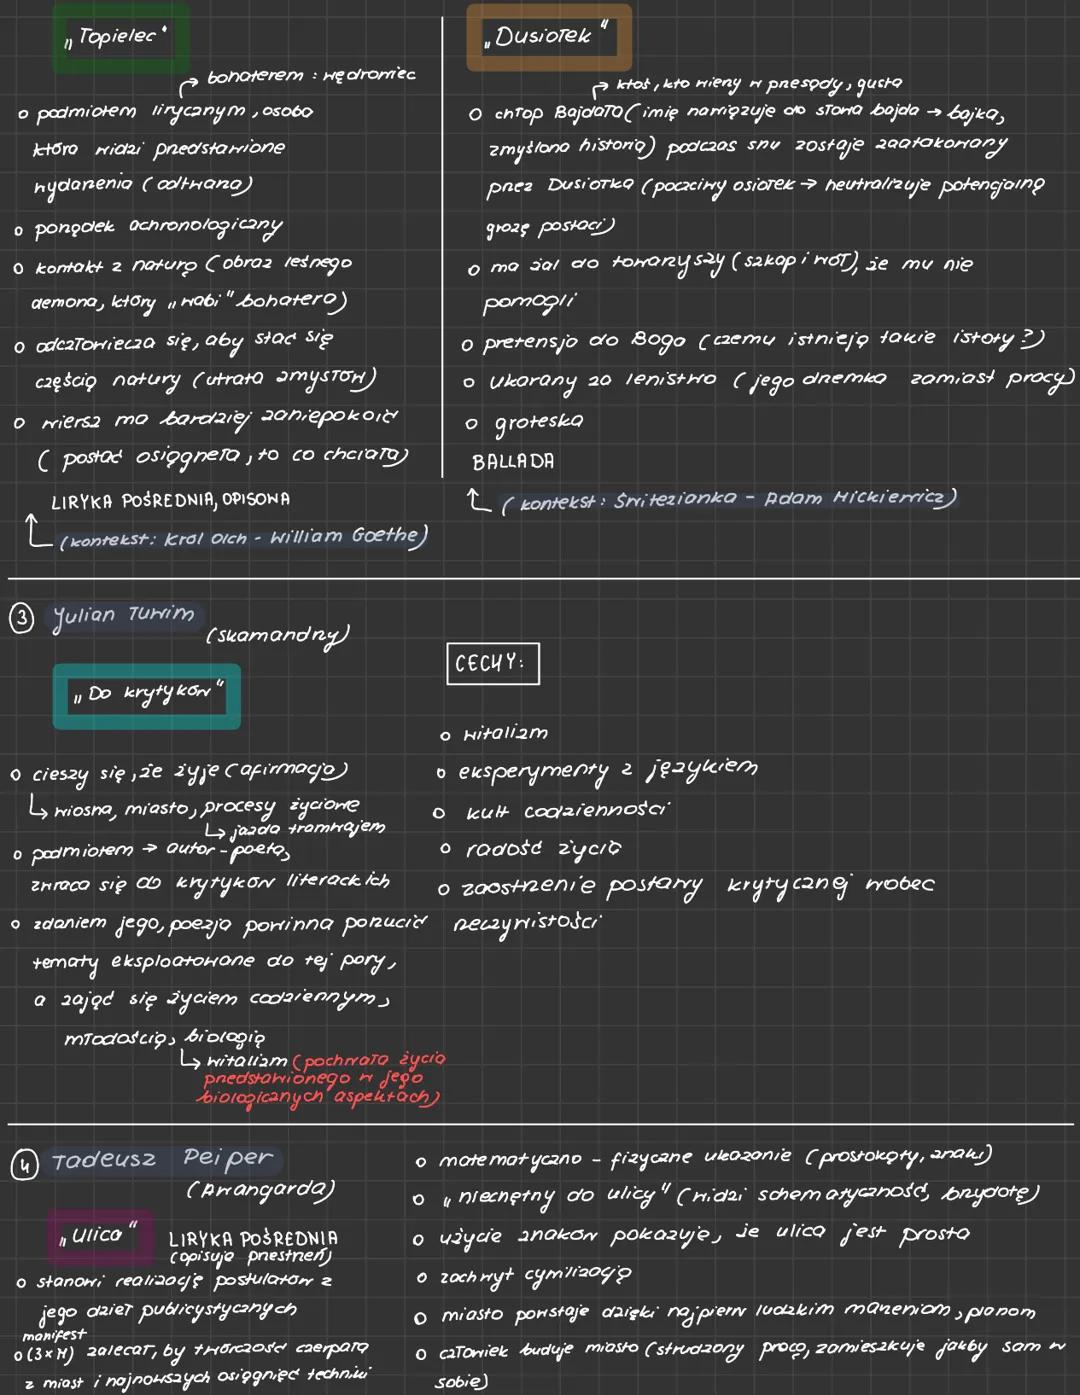 „Topielec"
→ bohaterem: wędrowiec
o podmiotem lirycznym, osoba
która widzi przedstawione
wydarzenia (odtwarza)
o porządek achronologiczny
o kontakt z naturą (obraz leśnego
demona, który „wabi" bohatera)
o odczłowiecza się, aby stać się
częścią natury (utrata zmysłów)
o wiersz ma bardziej zaniepokoić
(postać osiągnęła, to co chciała)
LIRYKA POŚREDNIA, OPISOWA
(kontekst: Król Olch - William Goethe)
„Dusiołek"
→ ktoś, kto wierzy w przesądy, gusła
o chłop Bajdała (imię nawiązuje do słowa bajda → bajka,
zmyślona historia) podczas snu zostaje zaatakowany
przez Dusiołka (poczciwy osiołek → neutralizuje potencjalną
grozę postaci)
o ma żal do towarzyszy (szkap i wół), że mu nie
pomogli
o pretensja do Boga (czemu istnieją takie istoty?)
o ukarany za lenistwo (jego drzemka zamiast pracy)
o groteska
BALLADA
(kontekst: Świtezianka - Adam Mickiewicz)
3 Julian Tuwim
(skamandrzy)
„Do krytyków"
o cieszy się, że żyje (afirmacja)
↳ wiosna, miasto, procesy życiowe
↳ jazda tramwajem
o podmiotem → autor-poeta,
zwraca się do krytyków literackich
o zdaniem jego, poezja powinna porzucić
tematy eksploatowane do tej pory,
a zająć się życiem codziennym,
młodością, biologią
↳ witalizm (pochwała życia
przedstawionego w jego
biologicznych aspektach)
CECHY:
o witalizm
o eksperymenty z językiem
o kult codzienności
o radość życia
o zaostrzenie postawy krytycznej wobec
rzeczywistości
4 Tadeusz Peiper
(Awangarda)
„Ulica"
LIRYKA POŚREDNIA
(opisuje przestrzeń)
o stanowi realizację postulatów z
jego dzieł publicystycznych
manifest
o (3xM) zalecał, by twórczość czerpała
z miast i najnowszych osiągnięć techniki
o matematyczno - fizyczne ukazanie (prostokąty, znaki)
o „niechętny do ulicy" (widzi schematyczność, brzydotę)
o użycie znaków pokazuje, że ulica jest prosta
o zachwyt cywilizacją
o miasto powstaje dzięki najpierw ludzkim marzeniom, planom
o człowiek buduje miasto (strudzony pracą, zamieszkuje jakby sam w
sobie)